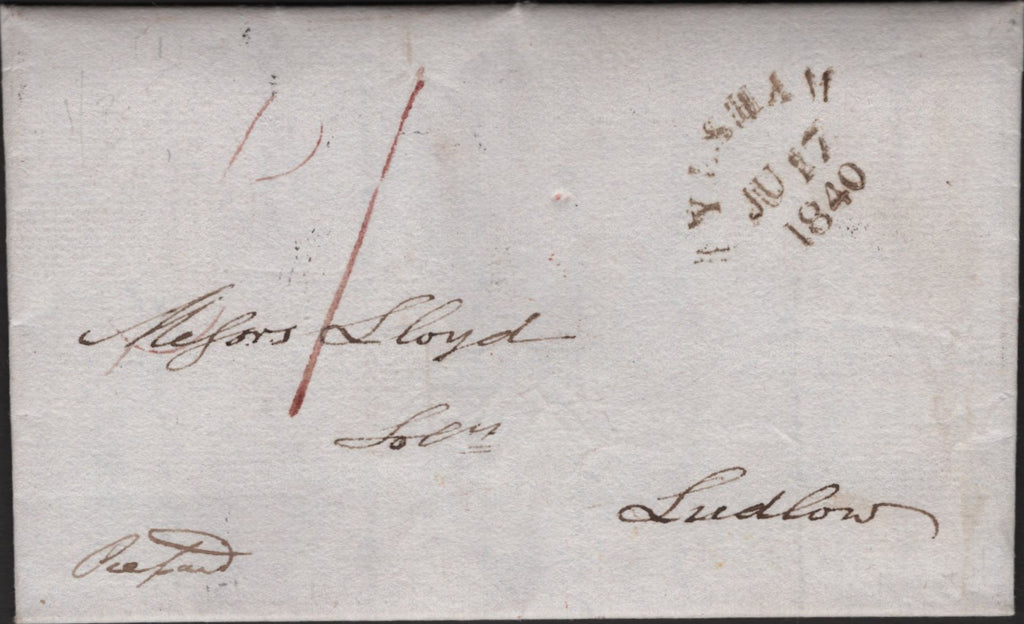 AYLSHAM
JU 17
1840
1
Messrs Lloyd
Solrs
Ludlow
Prepaid